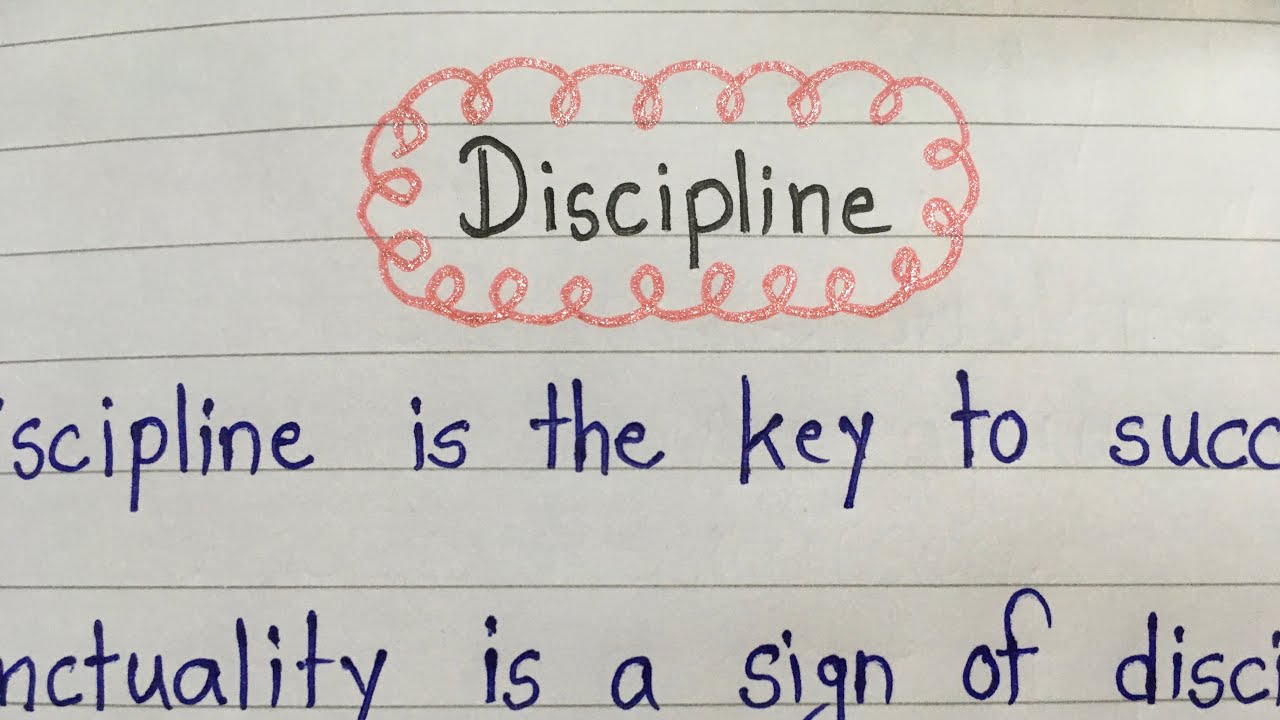 Discipline
iscipline is the key to succ
nctuality is a sign of disci